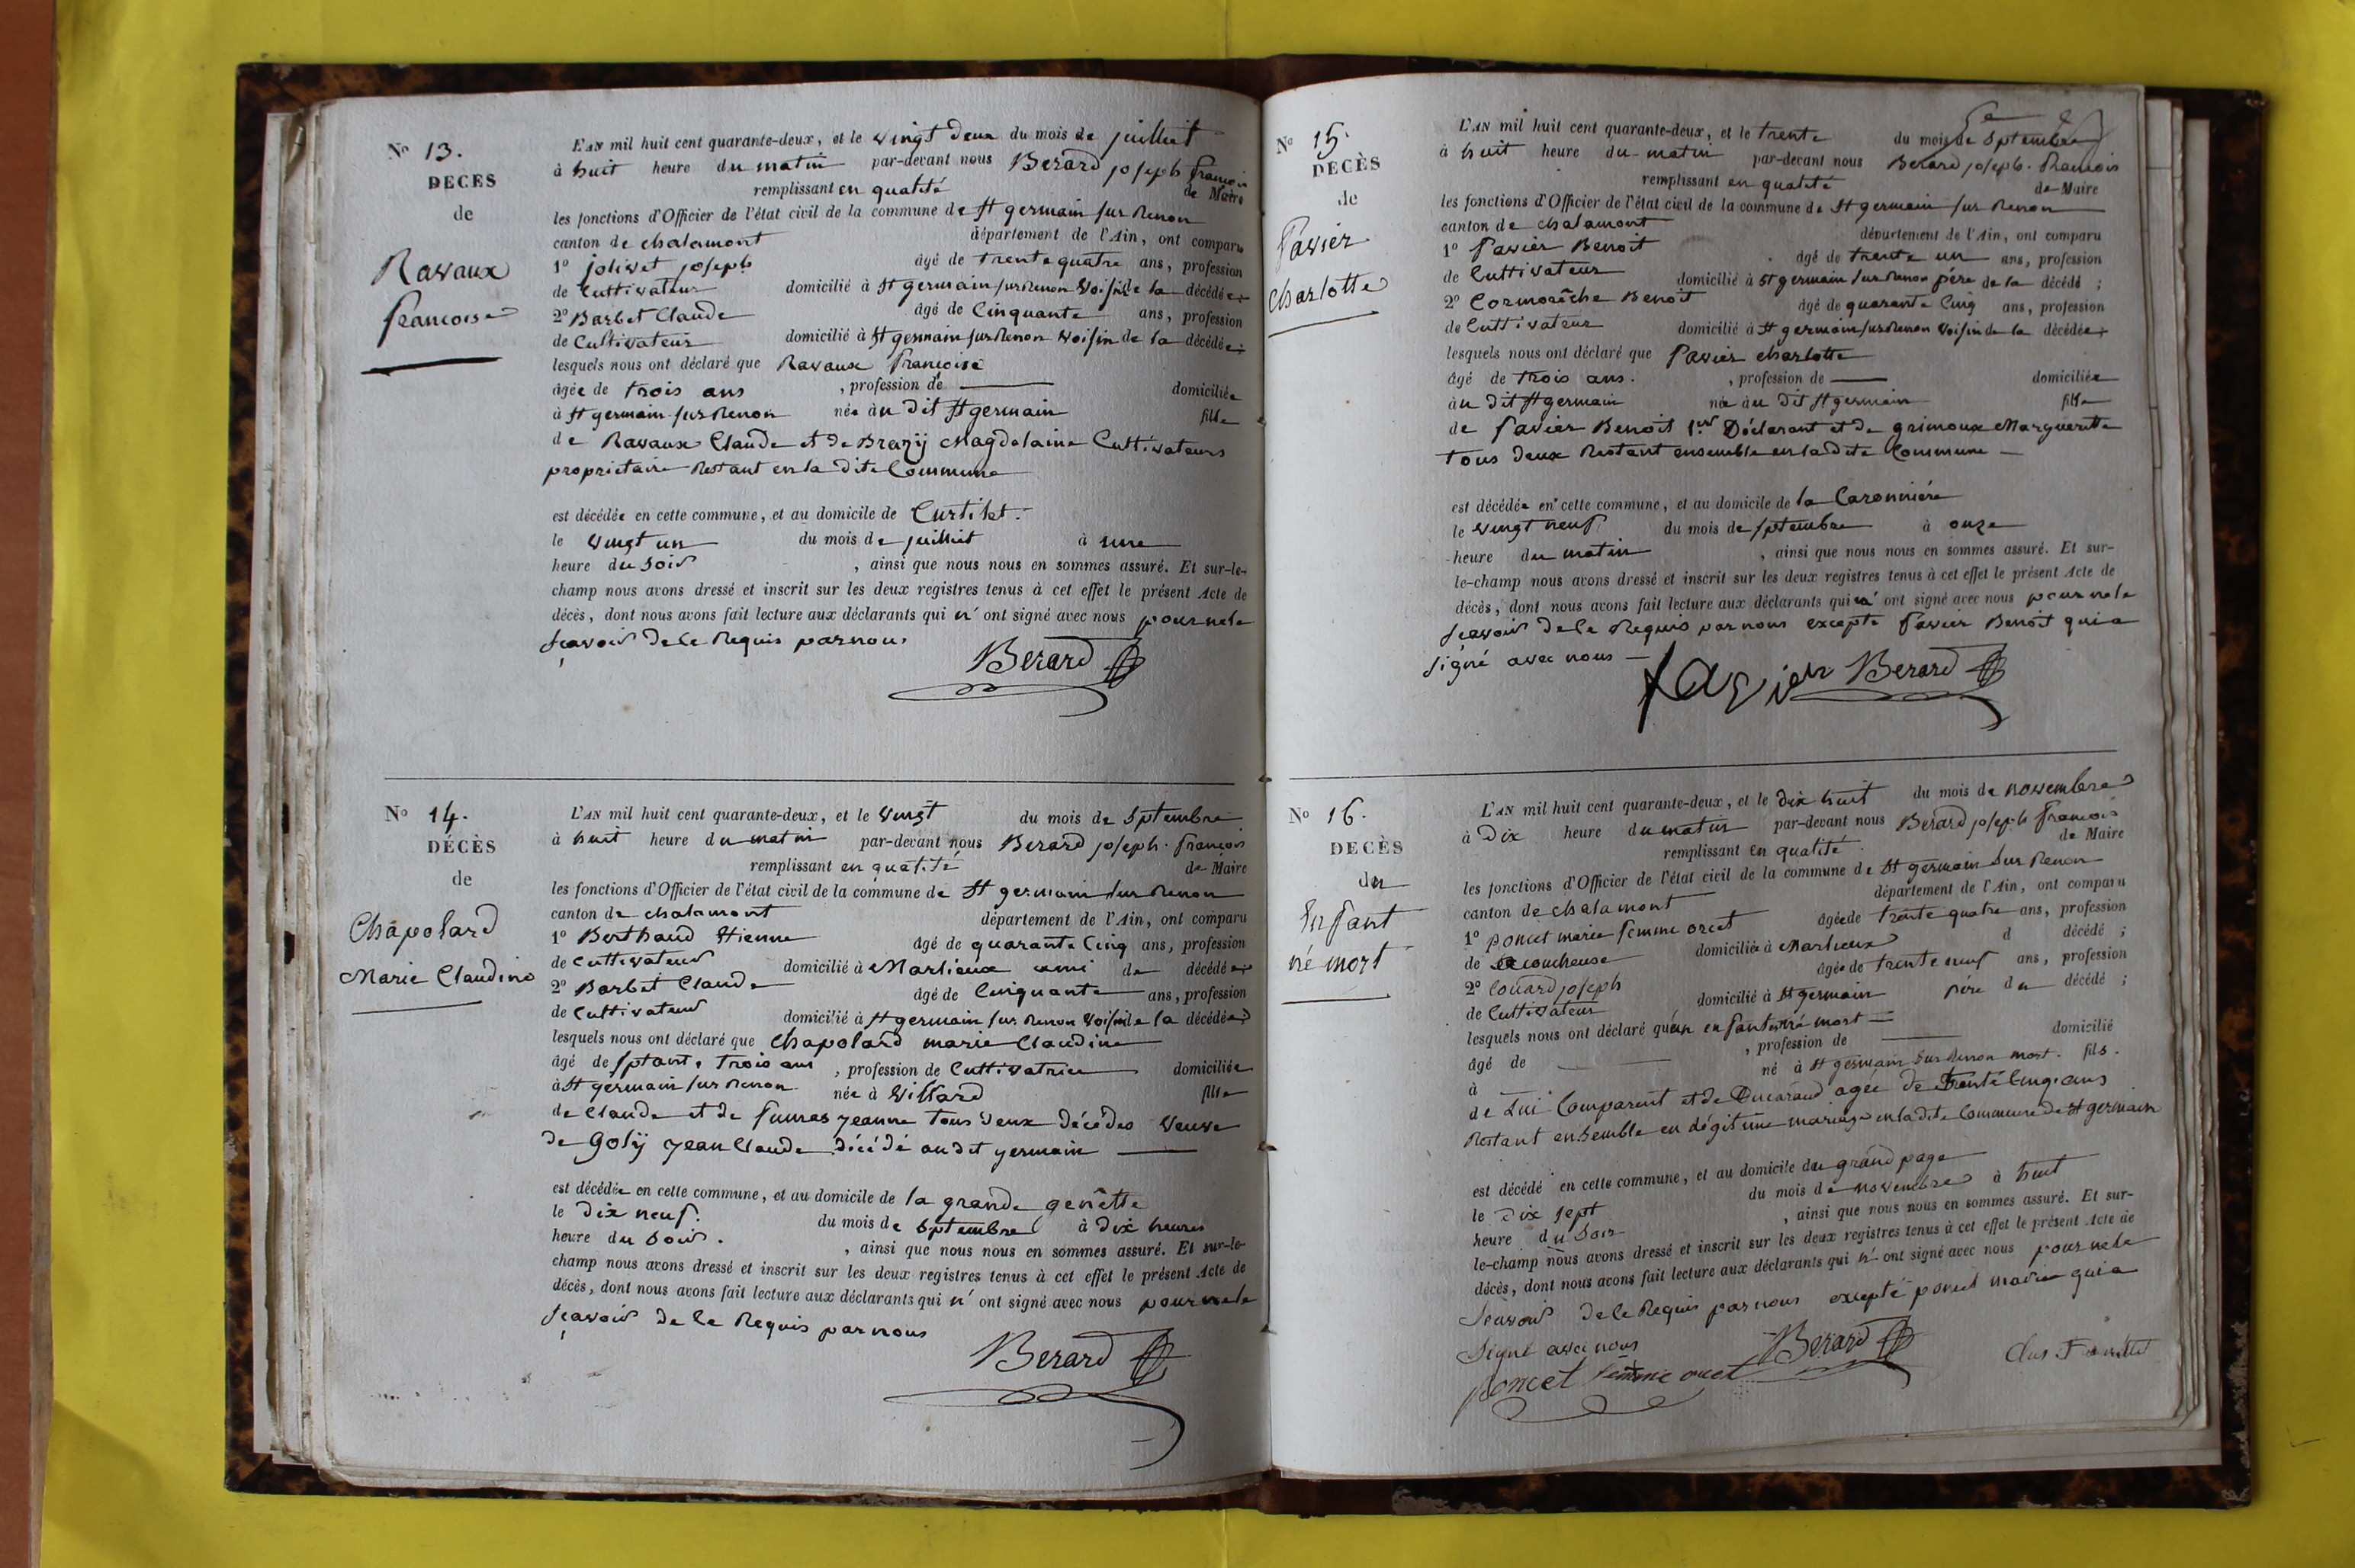 N° 13.
DECES
de
Ravaux
francoise
L'AN mil huit cent quarante-deux, et le vingt deux du mois de juilliet
à huit heure du matin par-devant nous Berard joseph françois
remplissant en qualité de Maire
les fonctions d'Officier de l'état civil de la commune de St germain sur Renon
canton de chalamont département de l'Ain, ont comparu
1° jolivet joseph âgé de trente quatre ans, profession
de Cultivateur domicilié à St germain sur Renon voisin de la décédée
2° Barbet Claude âgé de Cinquante ans, profession
de Cultivateur domicilié à St germain sur Renon voisin de la décédée;
lesquels nous ont déclaré que Ravaux françoise
âgée de trois ans , profession de — domiciliée
à St germain sur Renon née au dit St germain fille
de Ravaux Claude et de Brazij Magdelaine Cultivateurs
proprietaire Restant en la dite Commune
est décédée en cette commune, et au domicile de Curtilet.
le vingt un du mois de juilliet à une
heure du soir , ainsi que nous nous en sommes assuré. Et sur-le-
champ nous avons dressé et inscrit sur les deux registres tenus à cet effet le présent Acte de
décès, dont nous avons fait lecture aux déclarants qui n' ont signé avec nous pour ne le
scavoir de le Requis par nous
Berard
N° 14.
DÉCÈS
de
Chapolard
Marie Claudine
L'AN mil huit cent quarante-deux, et le vingt du mois de Septembre
à huit heure du matin par-devant nous Berard joseph. françois
remplissant en qualité de Maire
les fonctions d'Officier de l'état civil de la commune de St germain sur Renon
canton de chalamont département de l'Ain, ont comparu
1° Berthaud Etienne âgé de quarante Cinq ans, profession
de Cultivateur domicilié à Marlieux ami de décédée;
2° Barbet Claude âgé de Cinquante ans, profession
de Cultivateur domicilié à St germain sur Renon voisin de la décédée;
lesquels nous ont déclaré que Chapolard marie Claudine
âgé de septante trois ans , profession de Cultivatrice domiciliée
à St germain sur Renon née à Villard fille
de Claude et de Jeanne tous deux décédés veuve
de Golij jean Claude décédé au dit germain —
est décédée en cette commune, et au domicile de la grande genêtte
le dix neuf. du mois de Septembre à dix heures
heure du soir. , ainsi que nous nous en sommes assuré. Et sur-le-
champ nous avons dressé et inscrit sur les deux registres tenus à cet effet le présent Acte de
décès, dont nous avons fait lecture aux déclarants qui n' ont signé avec nous pour ne le
scavoir de le Requis par nous
Berard
N° 15.
DÉCÈS
de
Favier
Charlotte
L'AN mil huit cent quarante-deux, et le trente du mois de Septembre
à huit heure du matin par-devant nous Berard joseph. francois
remplissant en qualité de Maire
les fonctions d'Officier de l'état civil de la commune de St germain sur Renon
canton de chalamont département de l'Ain, ont comparu
1° Favier Benoit âgé de trente un ans, profession
de Cultivateur domicilié à St germain sur Renon pére de la décédé ;
2° Cormorêche Benoit âgé de quarante Cinq ans, profession
de Cultivateur domicilié à St germain sur Renon voisin de la décédée;
lesquels nous ont déclaré que Favier charlotte
âgé de trois ans. , profession de — domiciliée
au dit St germain née au dit St germain fille
de Favier Benoit 1er Déclarant et de grimoux Marguerite
tous deux Restant ensemble en la dite Commune —
est décédée en cette commune, et au domicile de la Caronniére
le vingt neuf du mois de septembre à onze
heure du matin , ainsi que nous nous en sommes assuré. Et sur-
le-champ nous avons dressé et inscrit sur les deux registres tenus à cet effet le présent Acte de
décès, dont nous avons fait lecture aux déclarants qui n' ont signé avec nous pour ne le
scavoir de le Requis par nous excepte Favier Benoit qui a
signé avec nous —
favier Berard
N° 16.
DECÈS
du
Enfant
né mort
L'AN mil huit cent quarante-deux, et le dix huit du mois de novembre
à Dix heure du matin par-devant nous Berard joseph francois
remplissant en qualité de Maire
les fonctions d'Officier de l'état civil de la commune de St germain sur Renon
canton de chalamont département de l'Ain, ont comparu
1° poncet marie femme orcet âgée de trente quatre ans, profession
de accoucheuse domiciliée à Marlieux d décédé ;
2° Couard joseph âgé de trente neuf ans, profession
de Cultivateur domicilié à St germain pére du décédé ;
lesquels nous ont déclaré qu'un enfant né mort —
âgé de — , profession de — domicilié
à né à St germain sur Renon mort. fils.
de Lui Comparent et de agée de Trente Cinq ans
Restant ensemble en légitime mariage en la dite Commune de St germain
est décédé en cette commune, et au domicile du grand page
le dix sept du mois de novembre à huit
heure du soir , ainsi que nous nous en sommes assuré. Et sur-
le-champ nous avons dressé et inscrit sur les deux registres tenus à cet effet le présent Acte de
décès, dont nous avons fait lecture aux déclarants qui n' ont signé avec nous pour ne le
scavoir de le Requis par nous excepté poncet marie qui a
Signé avec nous
Berard
poncet femme orcet